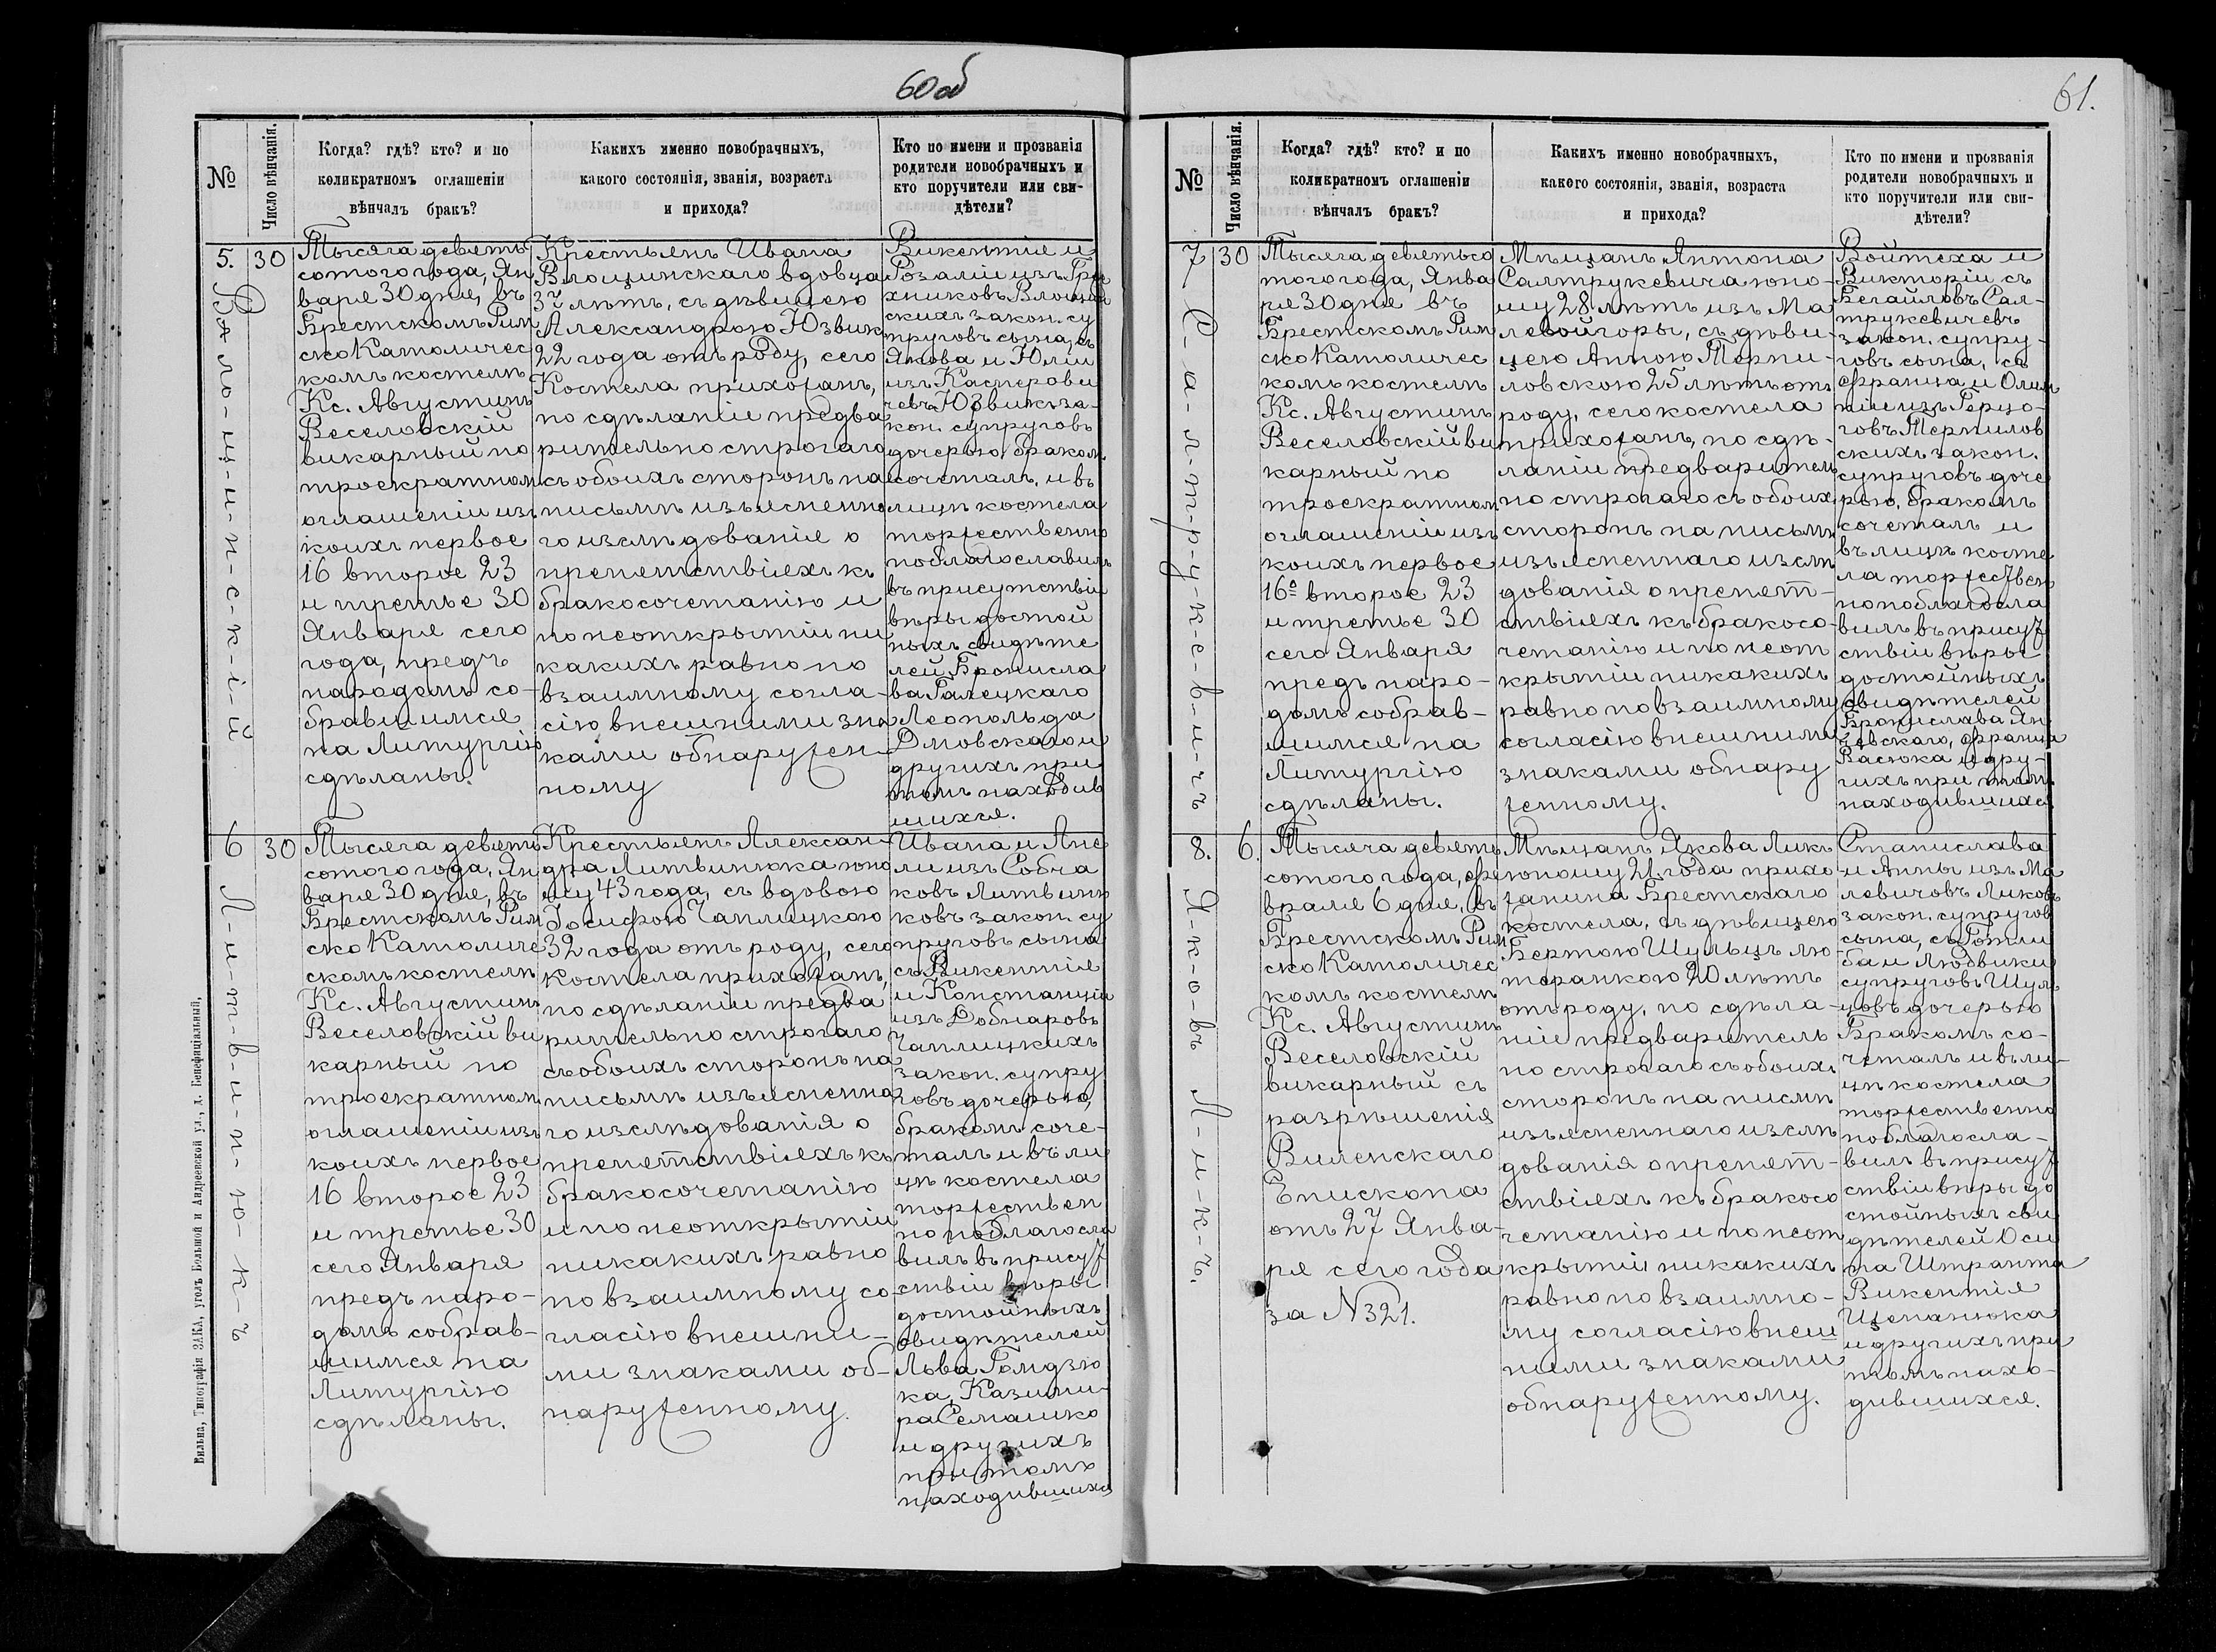 60об
№
Число вѣнчанія.
Когда? гдѣ? кто? и по
коликратномъ оглашеніи
вѣнчалъ бракъ?
Какихъ именно новобрачныхъ,
какого состоянія, званія, возраста
и прихода?
Кто по имени и прозванія
родители новобрачныхъ и
кто поручители или сви-
дѣтели?
5.
30
В-л-о-щ-и-н-с-к-і-й
Тысяча девять
сотого года, Ян
варя 30 дня, въ
Брестскомъ Рим
ско Католичес
комъ костелѣ
Кс. Августинъ
Веселовскій
викарный по
троекратном
оглашеніи изъ
коихъ первое
16 второе 23
и третье 30
Января сего
года, предъ
народомъ со-
бравшимся
на Литургію
сдѣланы.
Крестьянъ Ивана
Влощинскаго вдовца
37 лѣтъ, съ дѣвицею
Александрою Юзвик
22 года отъ роду, сего
Костела прихожанъ,
по сдѣланіи предва
рительно строгаго
съ обоихъ сторонъ на
письмѣ изъясненна
го изслѣдованія о
препятствіяхъ къ
бракосочетанію и
по неоткрытіи ни
какихъ равно по
взаимному согла-
сію внешними зна
ками обнаружен-
ному
Викентія и
Розаліи изъ
хниковъ Влощин
скихъ закон. су
пруговъ сына, съ
Якова и Юліи
изъ Касперови
чевъ Юзвикъ за-
кон. супруговъ
дочерью, браком
сочеталъ, и въ
лицѣ костела
торжественно
поблагославилъ
въ присутствіи
вѣры достой
ныхъ свидѣте
лей Бронисла
ва Галецкаго
Леопольда
Дмовскаго и
другихъ при
томъ находив
шихся.
6
30
Л-и-т-в-и-н-ю-к-ъ
Тысяча девять
сотого года, Ян
варя 30 дня, въ
Брестскомъ Рим
ско Католиче
скомъ костелѣ
Кс. Августинъ
Веселовскій ви
карный по
троекратном
оглашеніи изъ
коихъ первое
16 второе 23
и третье 30
сего Января
предъ наро-
домъ собрав-
шимся на
Литургію
сдѣланы.
Крестьянъ Алексан-
дра Литвинюка юно
шу 43 года, съ вдовою
Іосифою Чаплицкою
32 года отъ роду, сего
костела прихожанъ,
по сдѣланіи предва
рительно строгаго
съ обоихъ сторонъ на
письмѣ изъясненна
го изслѣдованія о
препятствіяхъ къ
бракосочетанію
и по неоткрытіи
никакихъ равно
по взаимному со-
гласію внешни-
ми знаками об-
наруженному.
Ивана и Ане
ли изъ Собча
ковъ Литвиню
ковъ закон. су
пруговъ сына
съ Викентія
и Констанціи
изъ Боднаровъ
Чаплицкихъ
закон. супру
говъ дочерью,
бракомъ соче-
талъ и въ ли
цѣ костела
торжествен
но поблагосла
вилъ въ присут
ствіи вѣры
достойныхъ
свидѣтелей
Льва Гомдзю
ка, Казими-
ра Семашко
и другихъ
при томъ
находившихся
Вильна, Типографія ЗАКА, уголъ Большой и Андреевской ул., д. Бенефиціальный,
61.
№
Число вѣнчанія.
Когда? гдѣ? кто? и по
коликратномъ оглашеніи
вѣнчалъ бракъ?
Какихъ именно новобрачныхъ,
какого состоянія, званія, возраста
и прихода?
Кто по имени и прозванія
родители новобрачныхъ и
кто поручители или сви-
дѣтели?
7
30
С-а-л-т-р-у-к-е-в-и-ч-ъ
Тысяча девятьсо
того года, Янва
ря 30 дня въ
Брестскомъ Рим
ско Католичес
комъ костелѣ
Кс. Августинъ
Веселовскій ви
карный по
троекратном
оглашеніи изъ
коихъ первое
16º второе 23
и третье 30
сего Января
предъ наро-
домъ собрав-
шимся на
Литургію
сдѣланы.
Мѣщанъ Антона
Салтрукевича юно-
шу 28 лѣтъ изъ Ма
левойгоры, съ дѣви-
цею Анною Терпи-
ловскою 25 лѣтъ отъ
роду, сего костела
прихожанъ, по сдѣ-
ланіи предварител
но строгаго съ обоих
сторонъ на письмѣ
изъясненнаго изслѣ
дованія о препят-
ствіяхъ къ бракосо-
четанію и по неот
крытіи никакихъ
равно по взаимному
согласію внешними
знаками обнару
женному.
Войтеха и
Викторіи съ
Бегайловъ Сал-
трукевичевъ
закон. супру-
говъ сына, съ
Франца и Олим
піи изъ Герцо-
говъ Терпилов
скихъ закон.
супруговъ доче
рью, бракомъ
сочеталъ и
въ лицѣ косте
ла торжествен
но поблагосла
вилъ въ присут
ствіи вѣры
достойныхъ
свидѣтелей
Бронислава Ян
чевскаго, Франца
Васюка и дру-
гихъ при томъ
находившихся
8.
6.
Я-к-о-въ Л-и-к-ъ.
Тысяча девять
сотого года, фе
враля 6 дня, въ
Брестскомъ Рим
ско Католичес
комъ костелѣ
Кс. Августинъ
Веселовскій
викарный съ
разрѣшенія
Виленскаго
Епископа
отъ 27 Янва-
ря сего года
за N 321.
Мѣщанъ Якова Ликъ
юношу 21 года прихо
жанина Брестскаго
костела, съ дѣвицею
Бертою Шульцъ лю-
теранкою 20 лѣтъ
отъ роду, по сдѣла-
ніи предваритель
но строгаго съ обоихъ
сторонъ на писмѣ
изъясненнаго изслѣ
дованія о препят-
ствіяхъ къ бракосо
четанію и по неот
крытіи никакихъ
равно по взаимно-
му согласію внеш
ними знаками
обнаруженному.
Станислава
и Анны изъ Ма
левичовъ Ликовъ
закон. супругов
сына, съ Готли
ба и Людвики
супруговъ Шул
цовъ дочерью
Бракомъ со-
четалъ и въ ли-
цѣ костела
торжественно
поблагосла-
вилъ въ присут
ствіи вѣры до
стойныхъ сви
дѣтелей Оси
па Штранта
Викентія
Щепанюка
и другихъ при
томъ нахо-
дившихся.